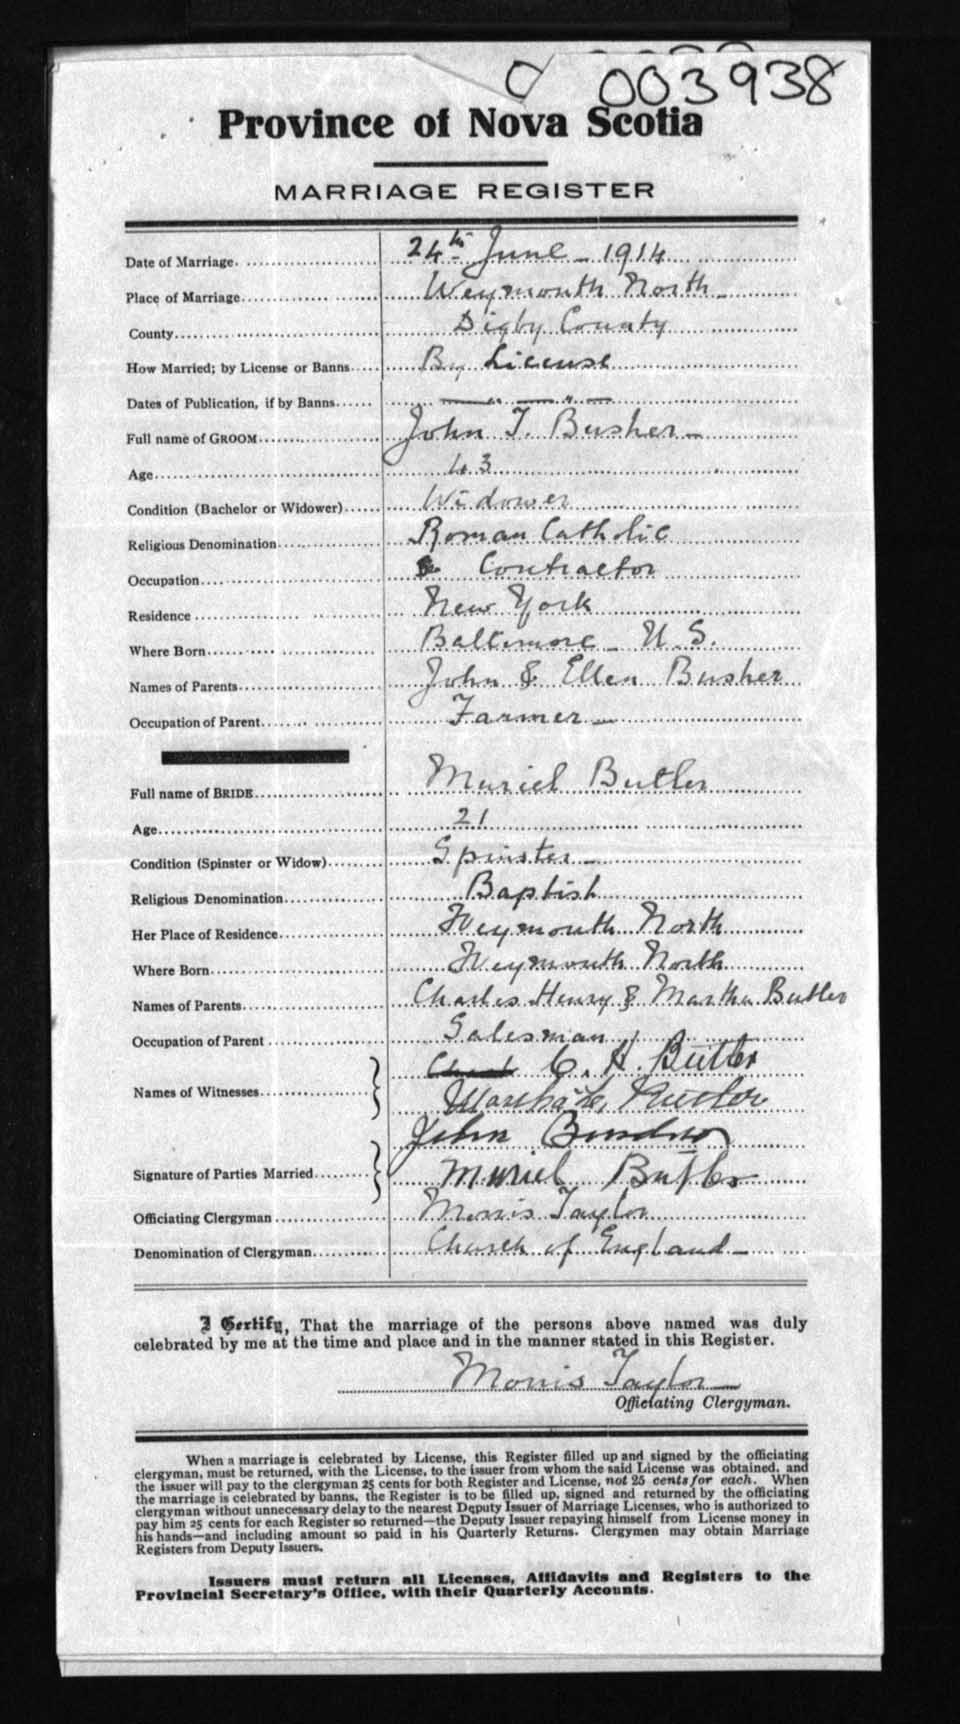 003938
Province of Nova Scotia
MARRIAGE REGISTER
Date of Marriage. 24th June - 1914
Place of Marriage Weymouth North
County Digby County
How Married; by License or Banns By License
Dates of Publication, if by Banns
Full name of GROOM John T. Busher
Age 43
Condition (Bachelor or Widower) Widower
Religious Denomination Roman Catholic
Occupation Contractor
Residence New York
Where Born Baltimore - U.S.
Names of Parents John & Ellen Busher
Occupation of Parent Farmer
Full name of BRIDE Muriel Butler
Age 21
Condition (Spinster or Widow) Spinster
Religious Denomination Baptist
Her Place of Residence Weymouth North
Where Born Weymouth North
Names of Parents Charles Henry & Martha Butler
Occupation of Parent Salesman
Names of Witnesses C. H. Butler
Butler
Signature of Parties Married John
Muriel Butler
Officiating Clergyman Morris Taylor
Denomination of Clergyman Church of England
I Certify, That the marriage of the persons above named was duly
celebrated by me at the time and place and in the manner stated in this Register.
Morris Taylor
Officiating Clergyman.
When a marriage is celebrated by License, this Register filled up and signed by the officiating
clergyman, must be returned, with the License, to the issuer from whom the said License was obtained, and
the issuer will pay to the clergyman 25 cents for both Register and License, not 25 cents for each. When
the marriage is celebrated by banns, the Register is to be filled up, signed and returned by the officiating
clergyman without unnecessary delay to the nearest Deputy Issuer of Marriage Licenses, who is authorized to
pay him 25 cents for each Register so returned—the Deputy Issuer repaying himself from License money in
his hands—and including amount so paid in his Quarterly Returns. Clergymen may obtain Marriage
Registers from Deputy Issuers.
Issuers must return all Licenses, Affidavits and Registers to the
Provincial Secretary's Office, with their Quarterly Accounts.